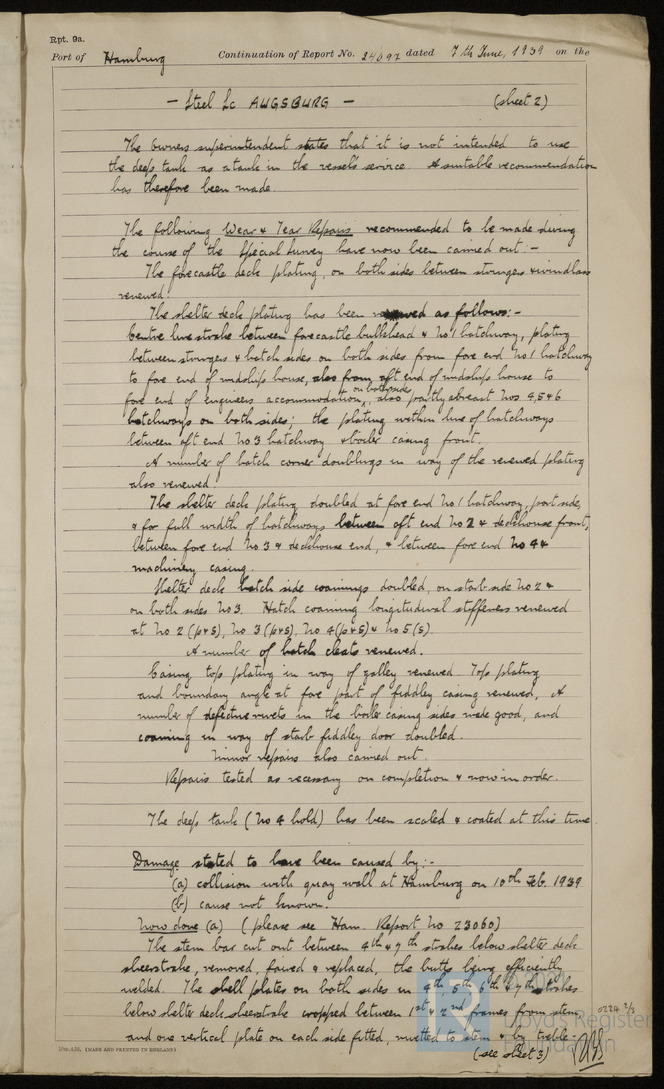 Rpt. 9a.
Port of Hamburg Continuation of Report No. 24697 dated 7th June, 1939 on the
- Steel Sc AUGSBURG - (sheet 2)
The Owners superintendent states that it is not intended to use
the deep tank as a tank in the vessel's service. A suitable recommendation
has therefore been made
The following Wear & Tear Repairs recommended to be made during
the course of the Special Survey have now been carried out :-
The forecastle deck plating, on both sides between stringers & windlass
renewed.
The shelter deck plating has been renewed as follows:-
Centre line strake between forecastle bulkhead & No 1 hatchway, plating
between stringers & hatch sides on both sides from fore end No 1 hatchway
to fore end of midship house, also from aft end of midship house to
fore end of engineers accommodation, on both sides, also partly abreast Nos 4, 5 & 6
hatchways on both sides; the plating within line of hatchways
between aft end No 3 hatchway & boiler casing front.
A number of hatch corner doublings in way of the renewed plating
also renewed.
The shelter deck plating doubled at fore end No 1 hatchway, port side,
& for full width of hatchways between aft end No 2 & deckhouse front,
between fore end No 3 & deckhouse end, & between fore end No 4 &
machinery casing.
Shelter deck hatch side coamings doubled, on starb side No 2 &
on both sides No 3. Hatch coaming longitudinal stiffeners renewed
at No 2 (p&s), No 3 (p&s), No 4 (p&s) & No 5 (s)
A number of hatch cleats renewed.
Casing top plating in way of galley renewed Top plating
and boundary angle at fore part of fiddley casing renewed, A
number of defective rivets in the boiler casing sides made good, and
coaming in way of starb fiddley door doubled.
Minor repairs also carried out.
Repairs tested as necessary on completion & now in order.
The deep tank (No 4 hold) has been scaled & coated at this time.
Damage stated to have been caused by:-
(a) collision with quay wall at Hamburg on 10th Feb. 1939
(b) cause not known.
Now done (a) (please see Ham. Report No 23060)
The stem bar cut out between 4th & 7th strakes below shelter deck
sheerstrake, removed, faired & replaced, the butts being efficiently
welded. The shell plates on both sides in 4th 5th 6th & 7th strakes
below shelter deck sheerstrake cropped between 1st & 2nd frames from stem
and one vertical plate on each side fitted, riveted to stem & by treble-
(see sheet 3)
0224 2/3
Lloyd's Register
Foundation
(MADE AND PRINTED IN ENGLAND)